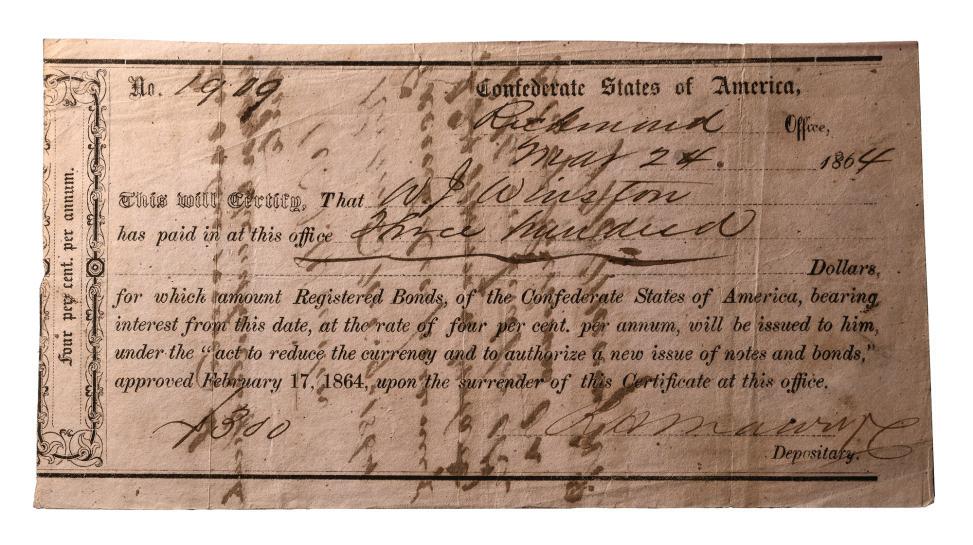 Four per cent. per annum.
No. 1909 Confederate States of America,
Richmond Office,
Mar 24. 1864
This will Certify, That W. J. Winston
has paid in at this office Three hundred
Dollars,
for which amount Registered Bonds, of the Confederate States of America, bearing
interest from this date, at the rate of four per cent. per annum, will be issued to him,
under the "act to reduce the currency and to authorize a new issue of notes and bonds,"
approved February 17, 1864, upon the surrender of this Certificate at this office.
$300
Depositary.